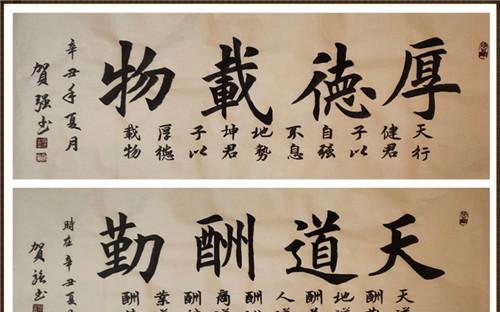 厚德載物
天行
健君
子以
自强
不息
地勢
坤君
子以
厚德
載物
辛丑年夏月
賀强书
天道酬勤
天道
酬
地道
酬
人道
酬
商道
酬
業道
酬
時在辛丑夏月
賀强书